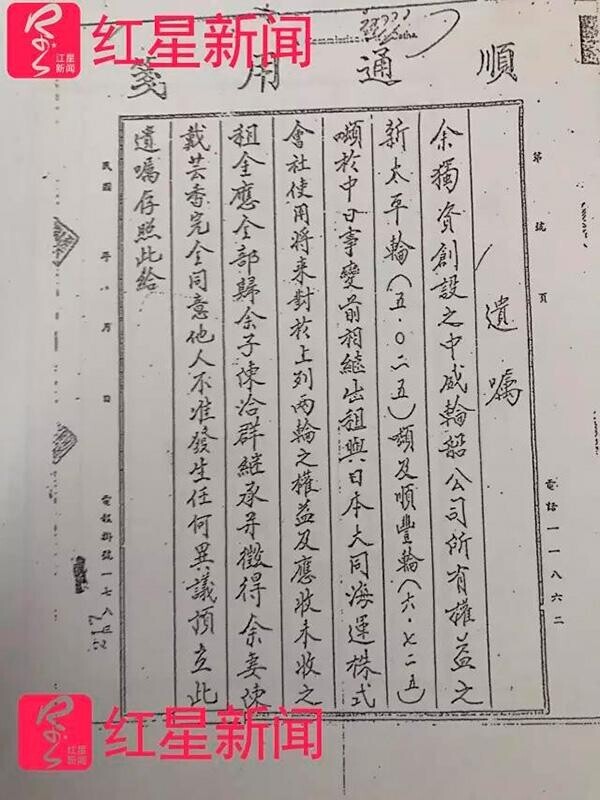 红星新闻
江星
新闻
順通用箋
第 號 頁
電話一一八六二
遺囑
余獨資創設之中威輪船公司所有權益之
新太平輪(五·〇二五)噸及順豐輪(六·七二五)
噸於中日事變前相繼出租與日本大同海運株式
會社使用將来對於上列兩輪之權益及應收未收之
租金應全部歸余子陳洽群繼承并徵得余妻陳
戴芸香完全同意他人不准發生任何異議預立此
遺囑存照此給
民國 年 月 日
電報掛號一七八
217
红星新闻
江星
新闻